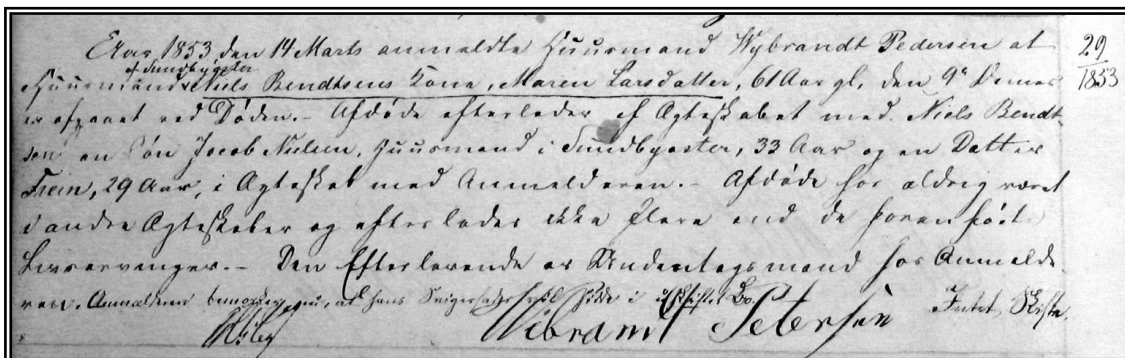 Aar 1853 den 14 Marts anmeldte Huusmand Wybrandt Pedersen at
29/1853
af Sundbyøster
Huusmand Niels Bendtsens Kone, Maren Larsdatter, 61 Aar gl. den 9de Dennes
er afgaaet ved Døden. - Afdøde efterlader af Ægteskabet med Niels Bendt-
sen en Søn Jacob Nielsen, Huusmand i Sundbyøster, 33 Aar og en Datter
Trein, 29 Aar, i Ægteskab med Anmelderen. - Afdøde har aldrig været
i andre Ægteskaber og efterlader ikke flere end de foranførte
Livsarvinger. - Den Efterlevende er Undentagsmand hos Anmelde-
ren. Anmelderen bemærker nu, at hans i uskiftet Bo. Intet Skifte.
Wibramt Petersen